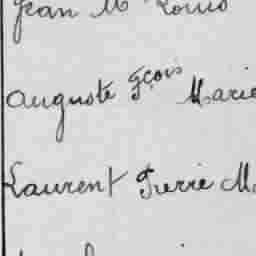 Jean M Louis
Auguste Fçois Marie
Laurent Pierre M